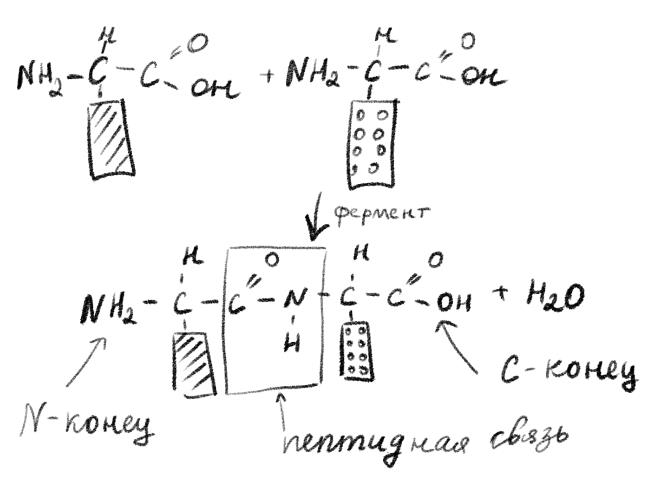 H H
NH₂-C-C=O OH + NH₂-C-C=O OH
фермент
H O H O
NH₂-C-C-N-C-C-OH + H₂O
H
N-конец
C-конец
пептидная связь